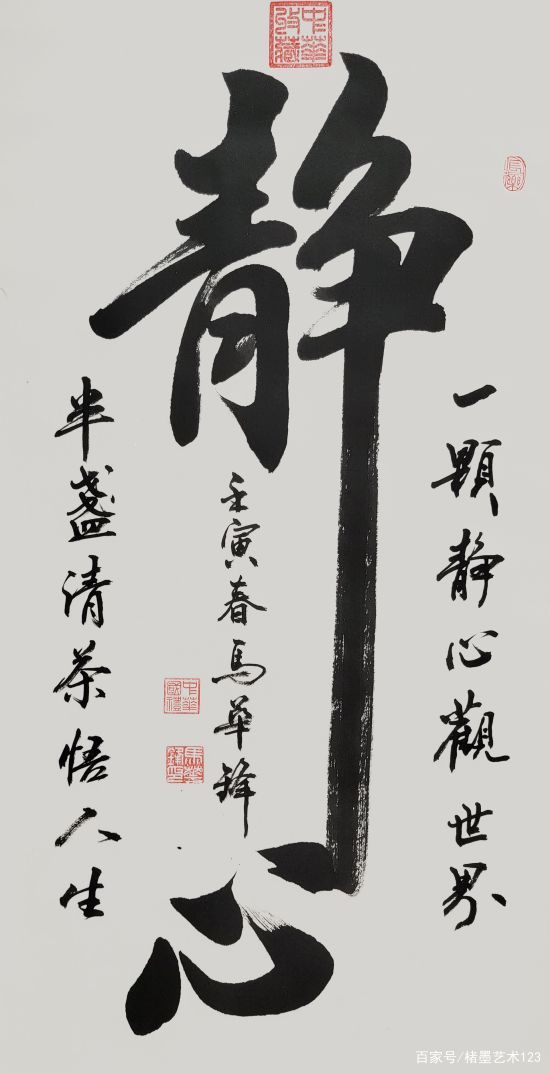 静心
一顆静心觀世界
半盏清茶悟人生
壬寅春馬華鋒
中華收藏
中華國禮
馬華鋒印
百家号/楮墨艺术123